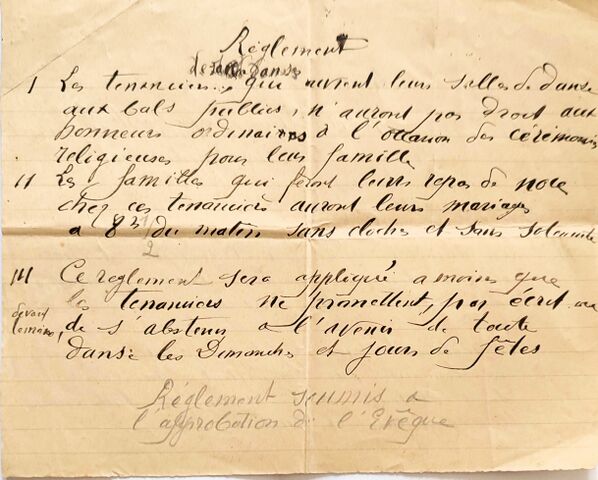 Règlement
de danse
I Les tenanciers, qui auront leurs salles de danse
aux bals publics, n'auront pas droit aux
honneurs ordinaires à l'occasion des cérémonies
religieuses pour leur famille
II Les familles qui feront leurs repas de noce
chez ces tenanciers auront leurs mariages
a 8h 1/2 du matin sans cloches et sans solennité
III Ce reglement sera appliqué a moins que
les tenanciers ne promettent, par écrit
devant
de s'abstenir a l'avenir de toute
danse les Dimanches et jours de fêtes
Réglement soumis a
l'approbation de l'Evêque